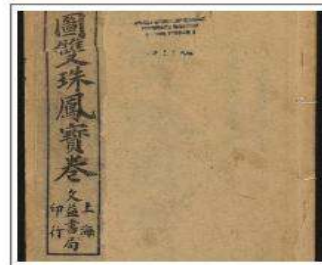 圖雙珠鳳寶卷
上海
文益書局
印行